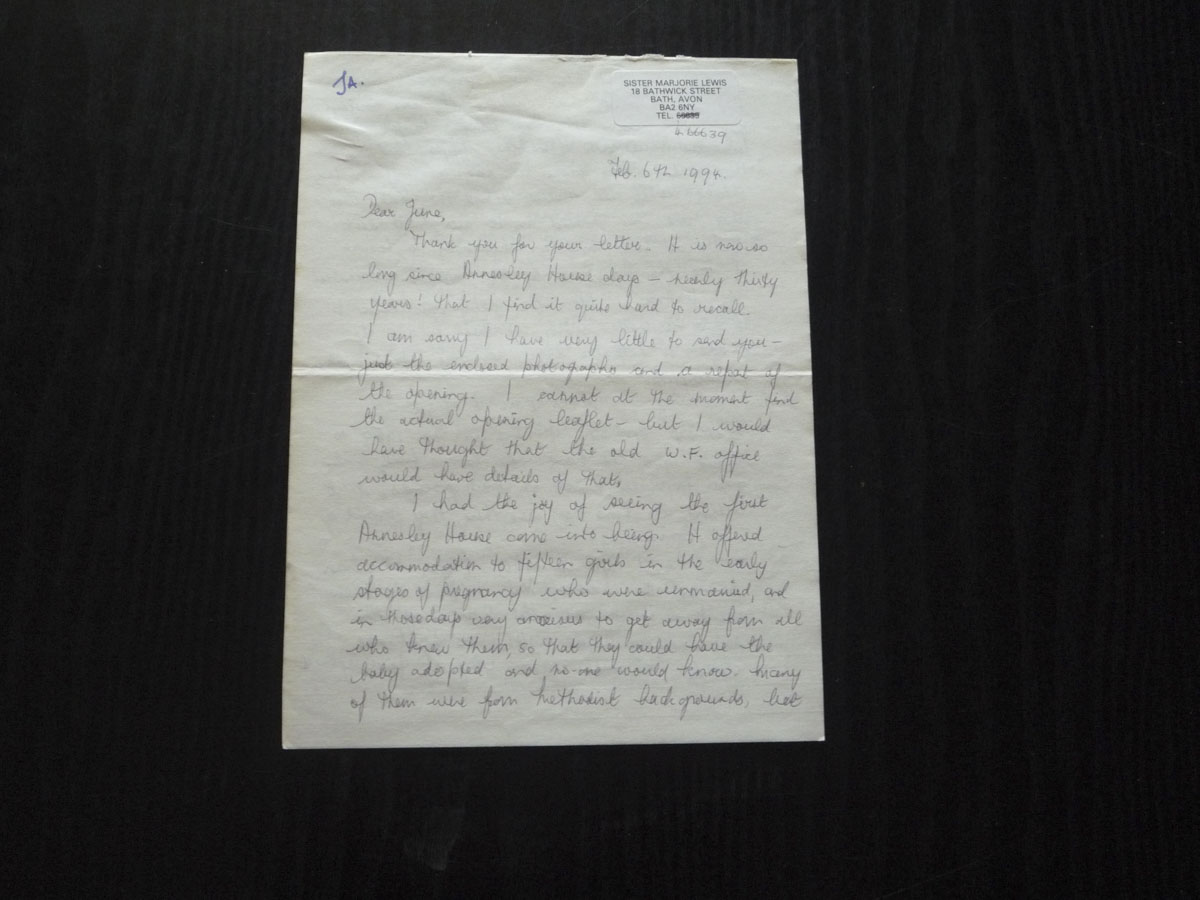 JA.
SISTER MARJORIE LEWIS
18 BATHWICK STREET
BATH, AVON
BA2 6NY
TEL.
466639
Feb. 6th 1994.
Dear June,
Thank you for your letter. It is now so
long since Annesley House days – nearly thirty
years! that I find it quite hard to recall.
I am sorry I have very little to send you –
just the enclosed photographs and a report of
the opening. I cannot at the moment find
the actual opening leaflet – but I would
have thought that the old W.F. office
would have details of that.
I had the joy of seeing the first
Annesley House come into being. It offered
accommodation to fifteen girls in the early
stages of pregnancy who were unmarried, and
in those days very anxious to get away from all
who knew them, so that they could have the
baby adopted and no-one would know. Many
of them were from Methodist backgrounds, but